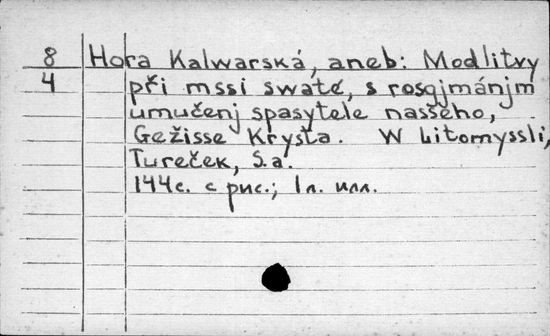 8 Hora Kalwarská, aneb: Modlitvy
4 při mssi swaté, s rosgjmánjm
umučenj spasytele nasseho,
Gežisse Krysta. W Litomyssli,
Tureček, S.a.
144с. с рис.; 1л. илл.